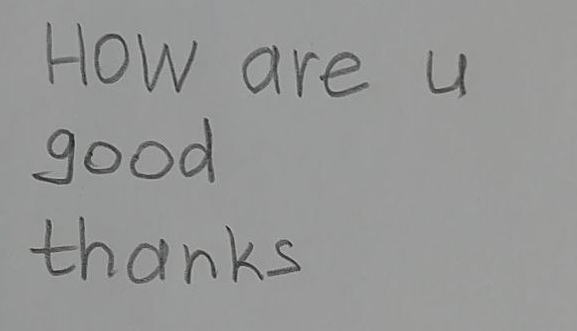 How are u
good
thanks